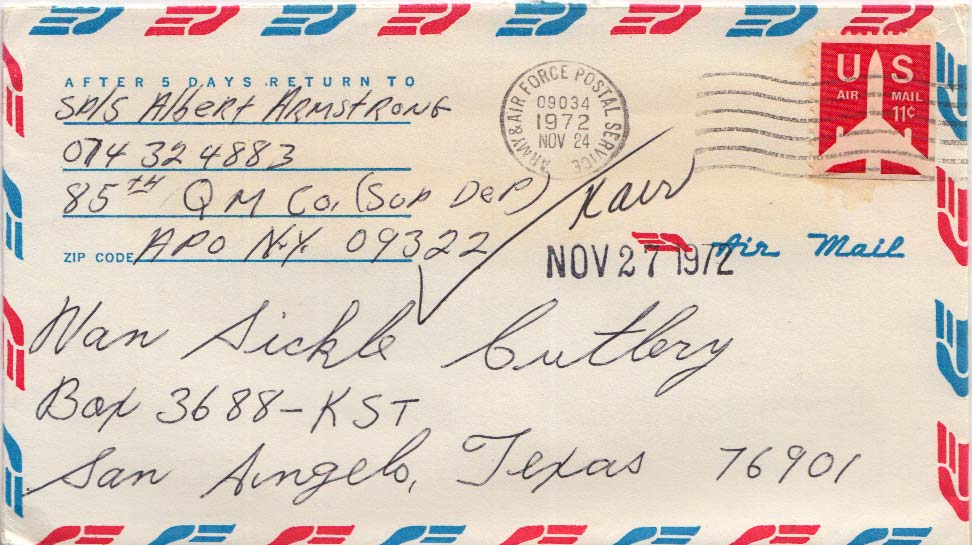 AFTER 5 DAYS RETURN TO
SP/5 Albert ARMSTRONG
074 32 4883
85th QM Co. (Sup DeP)
ZIP CODE APO N.Y. 09322
ARMY & AIR FORCE POSTAL SERVICE
09034
1972
NOV 24
US
AIR MAIL
11¢
NOV 27 1972
Air Mail
Van Sickle Cutlery
Box 3688-KST
San Angelo, Texas 76901